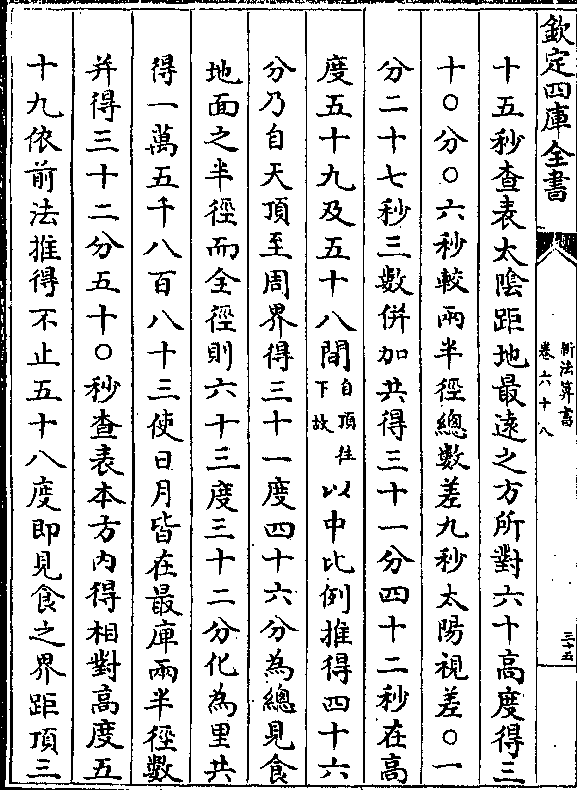 欽定四庫全書
新法算書
卷六十八
三十五
十五秒查表太陰距地最遠之方所對六十高度得三
十〇分〇六秒較兩半徑總數差九秒太陽視差〇一
分二十七秒三數併加共得三十一分四十二秒在高
度五十九及五十八間自頂往下故以中比例推得四十六
分乃自天頂至周界得三十一度四十六分為總見食
地面之半徑而全徑則六十三度三十二分化為里共
得一萬五千八百八十三使日月皆在最庳兩半徑數
并得三十二分五十〇秒查表本方內得相對高度五
十九依前法推得不止五十八度即見食之界距頂三